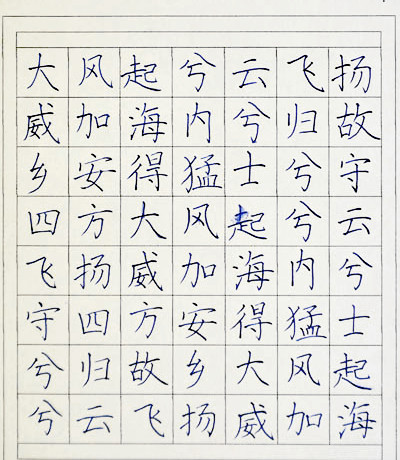 大风起兮云飞扬
威加海内兮归故
乡安得猛士兮守
四方大风起兮云
飞扬威加海内兮
守四方安得猛士
兮归故乡大风起
兮云飞扬威加海